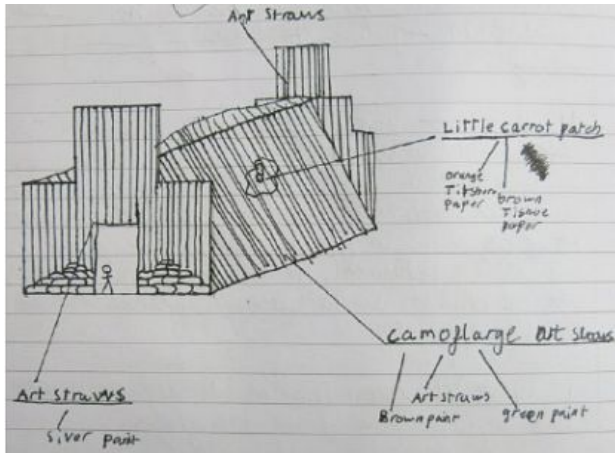 Art Straws
Little carrot patch
orange
Titshore
paper
brown
Tissue
paper
camoflarge art straws
Art straws
Brown paint
green paint
Art straws
Silver paint